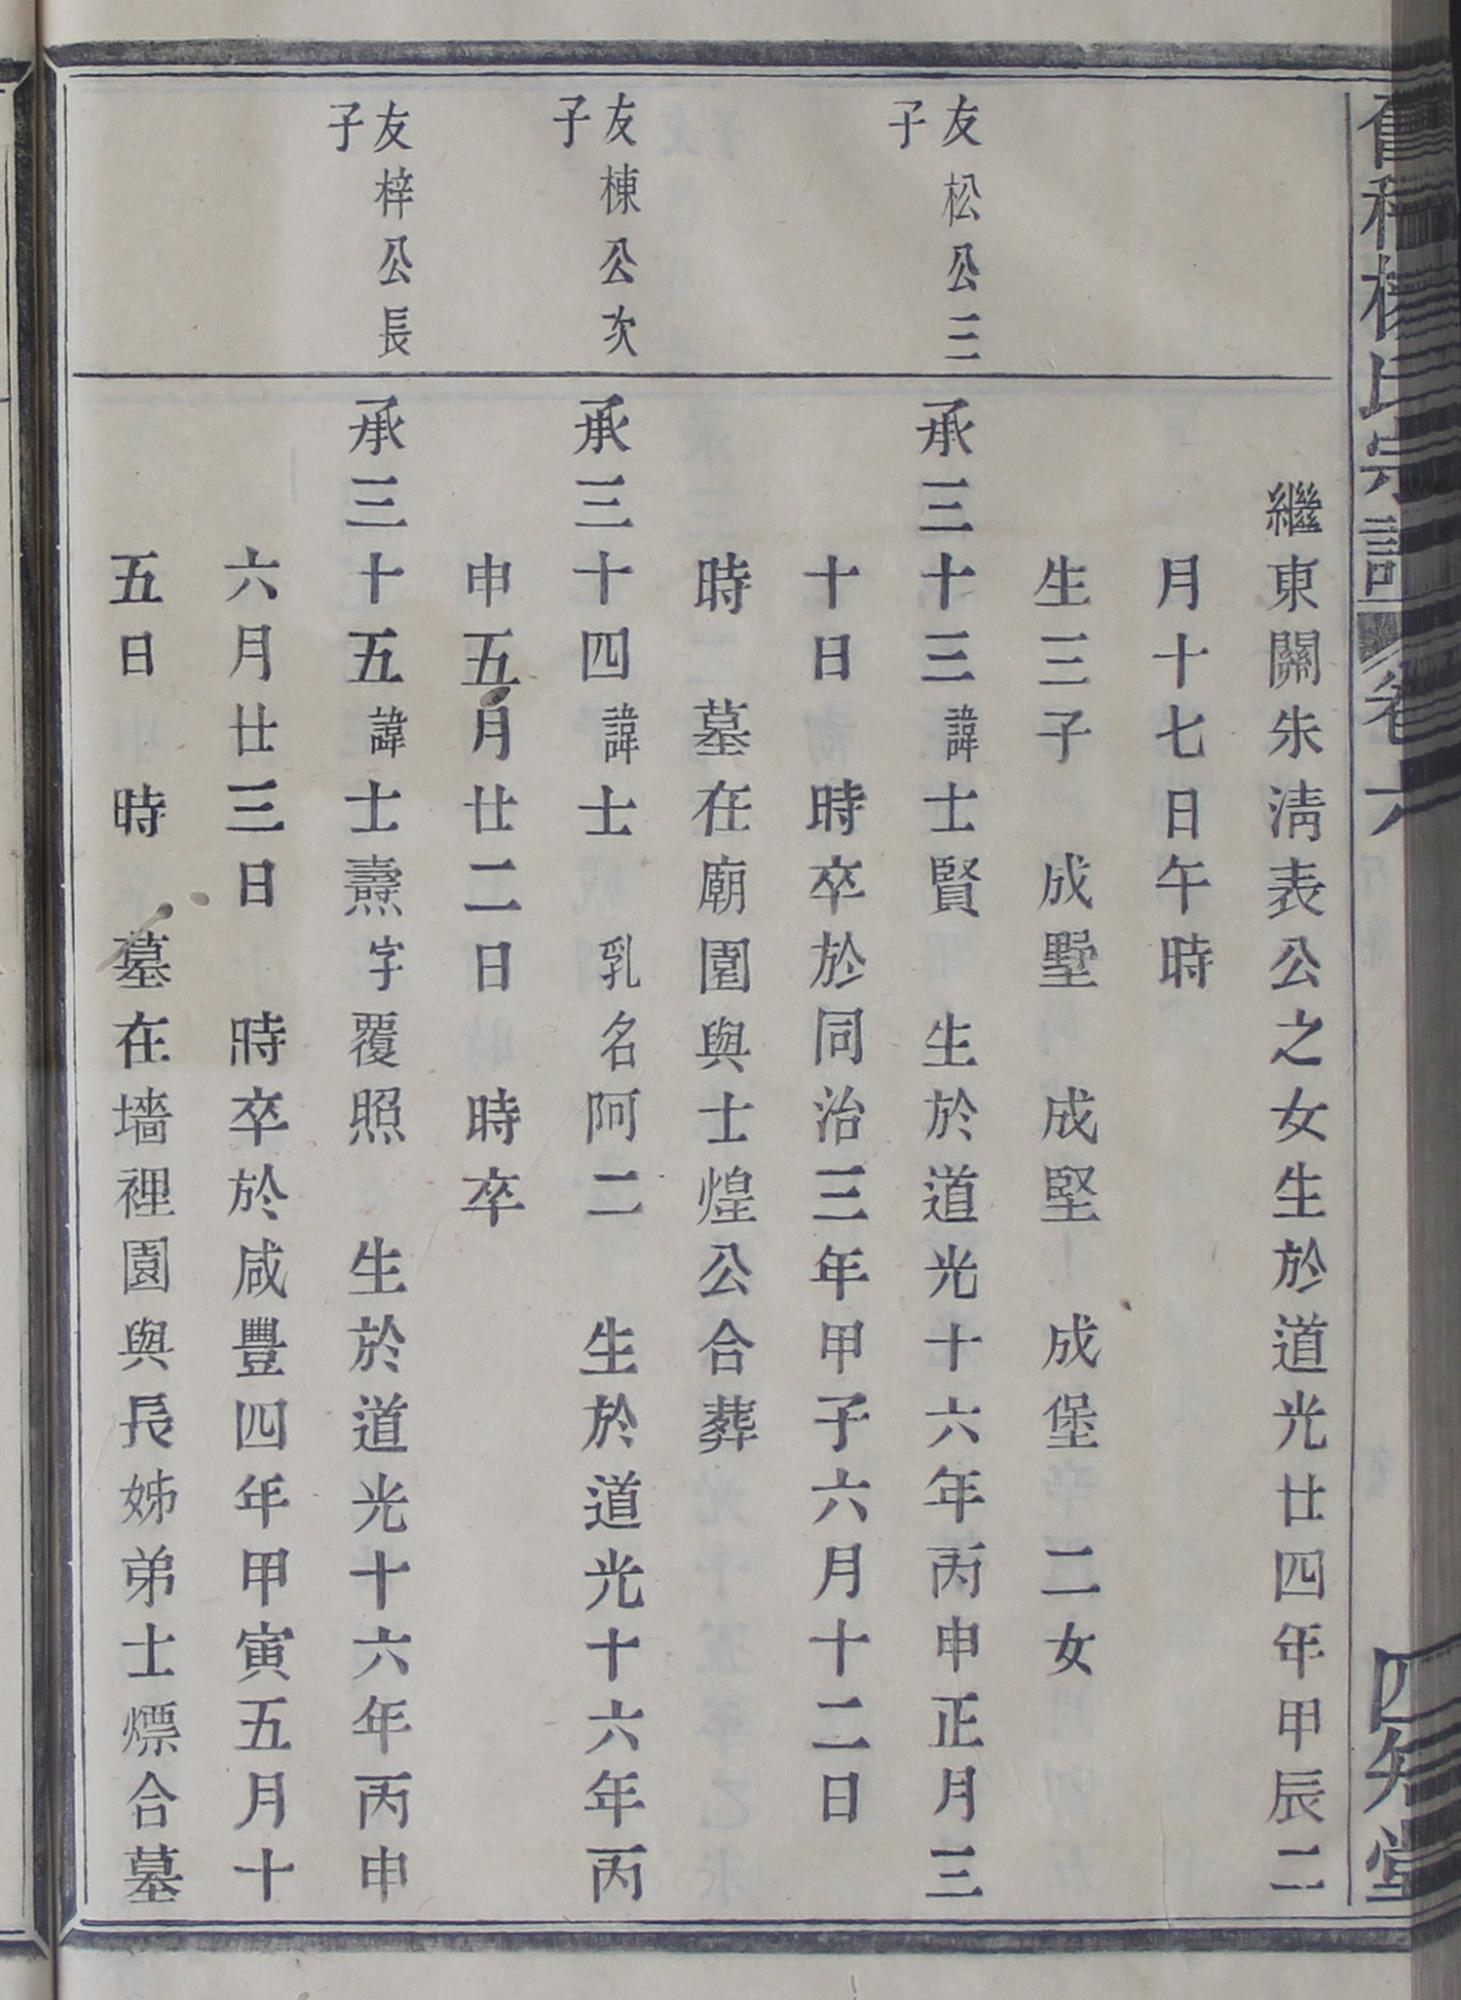 繼東關朱淸表公之女生於道光廿四年甲辰二
月十七日午時
生三子 成墅 成堅 成堡 二女
友松公三
子
承三十三諱士賢 生於道光十六年丙申正月三
十日 時卒於同治三年甲子六月十二日
時 墓在廟園與士煌公合葬
友棟公次
子
承三十四諱士 乳名阿二 生於道光十六年丙
申五月廿二日 時卒
友梓公長
子
承三十五諱士燾字覆照 生於道光十六年丙申
六月廿三日 時卒於咸豐四年甲寅五月十
五日 時 墓在墻裡園與長姊弟士熛合墓
宗譜 卷六
四知堂